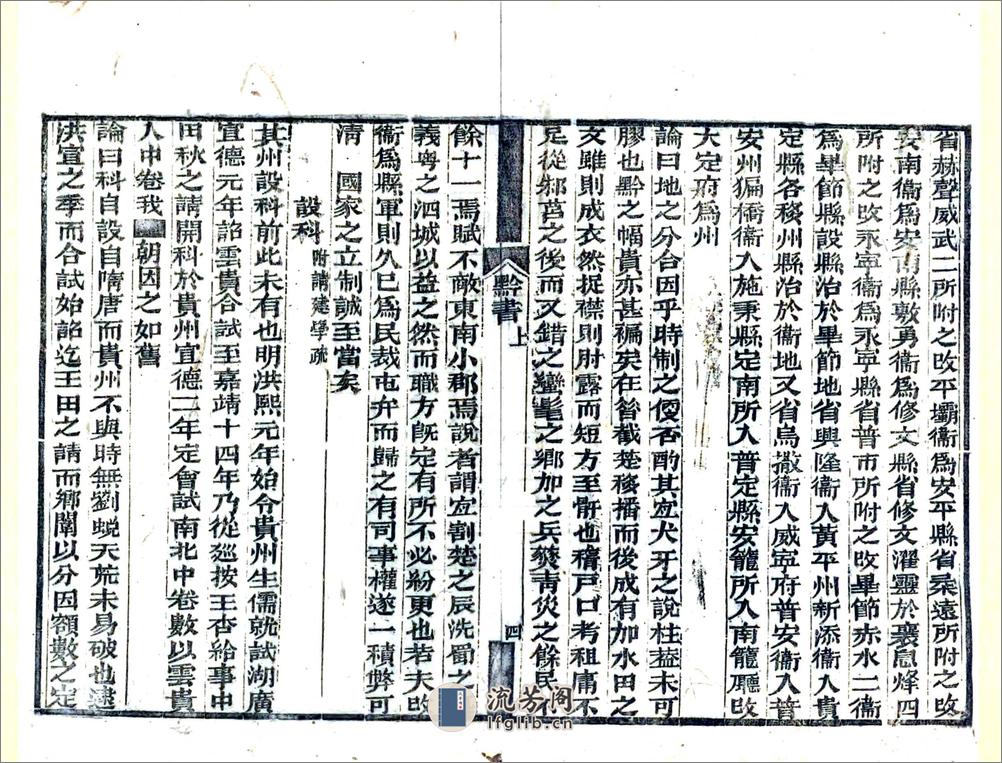 省赫聲威武二所附之改平壩衞爲安平縣省柔遠所附之改
安南衞爲安南縣敷勇衞爲修文縣省修文濯靈於襄息烽四
所附之改永寧衞爲永寧縣省普市所附之改畢節赤水二衞
爲畢節縣設縣治於畢節地省興隆衞入黃平州新添衞入貴
定縣各移州縣治於衞地又省烏撒衞入威寧府普安衞入普
安州猵橋衞入施秉縣定南所入普定縣安籠所入南籠廳改
大定府爲州
論曰地之分合因乎時制之便否酌其宜犬牙之說柱葢未可
膠也黔之幅貴亦甚褊矣在昝截楚移播而後成有加水田之
文雖則成衣然捉襟則肘露而短方至骭也稽戸口考租庸不
足從邾莒之後而又錯之蠻髦之鄉加之兵燹靑災之餘民不
黔書 上 四
餘十一焉賦不敵東南小郡焉說者謂宜割楚之辰洗蜀之
義粤之泗城以益之然而職方旣定有所不必紛更也若夫改
衞爲縣軍則久已爲民裁屯弁而歸之有司事權遂一積弊可
淸 國家之立制誠至當矣
設科 附請建學疏
其州設科前此未有也明洪熙元年始令貴州生儒就試湖廣
宣德元年詔雲貴合試至嘉靖十四年乃從廵按王杏給事中
田秋之請開科於貴州宣德二年定會試南北中卷數以雲貴
入中卷我 朝因之如舊
論曰科自設自隋唐而貴州不與時無劉蛻天荒未易破也逮
洪宣之季而合試始詔迄王田之請而鄉闈以分因額數之定
流芳阁
lfglib.cn